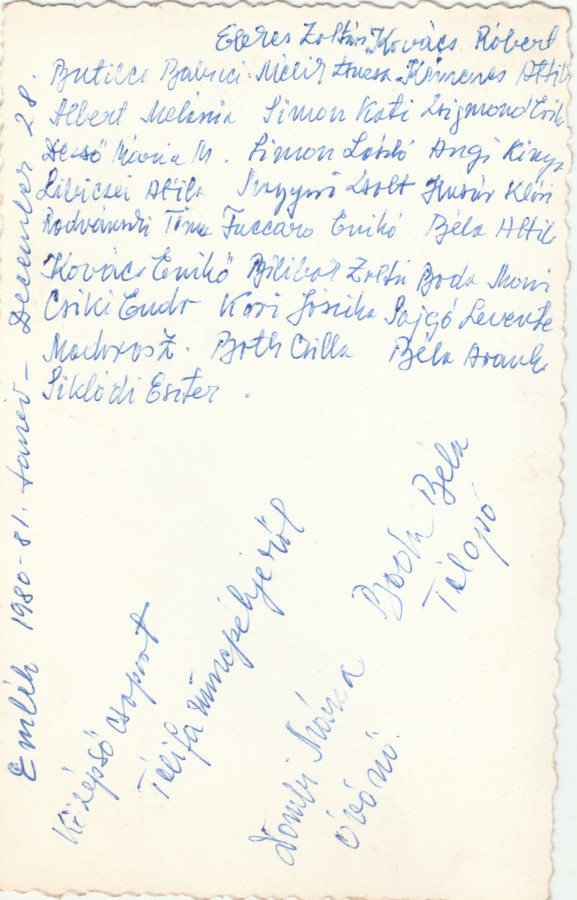 Egeres Zoltán Kovács Róbert
Butilca Babuci Melik Kemenes Attila
Albert Melánia Simon Kati Zsigmond
Dezső Mária M. Simon László Angi
Libiczei Attila Magyari Zsolt Huszár Klári
Radvánszki Tímea Fuccaro Enikő Béla Attila
Kovács Enikő Bilibok Zoltán Boda Moni
Csiki Endre Kori Jósika Sajgó Levente
Both Csilla Béla Aranka
Siklódi Eszter.
Emlék 1980-81. tanév - December 28.
Középső csoport
Télifa ünnepélyéről
Dombi Mária
óvónő.
Bodó Béla
Télapó